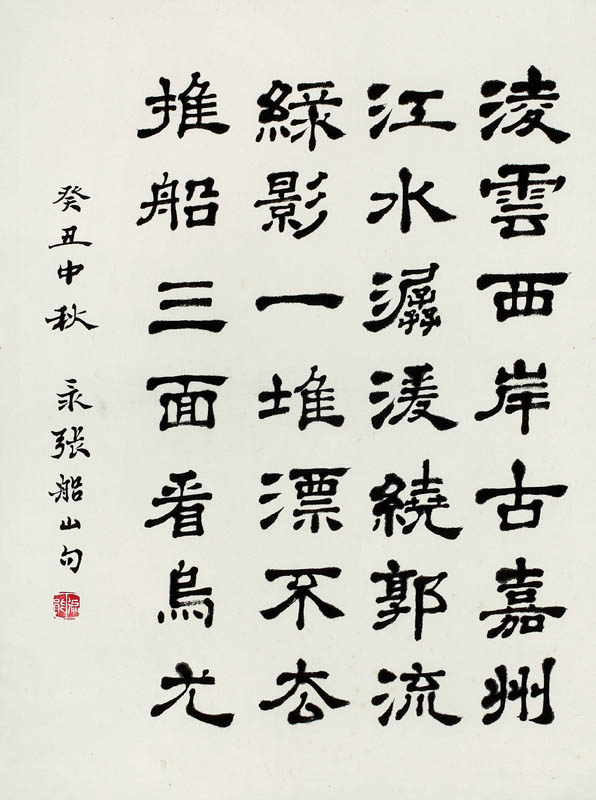 淩雲西岸古嘉州
江水潺湲繞郭流
綠影一堆漂不去
推船三面看烏尤
癸丑中秋 录張船山句